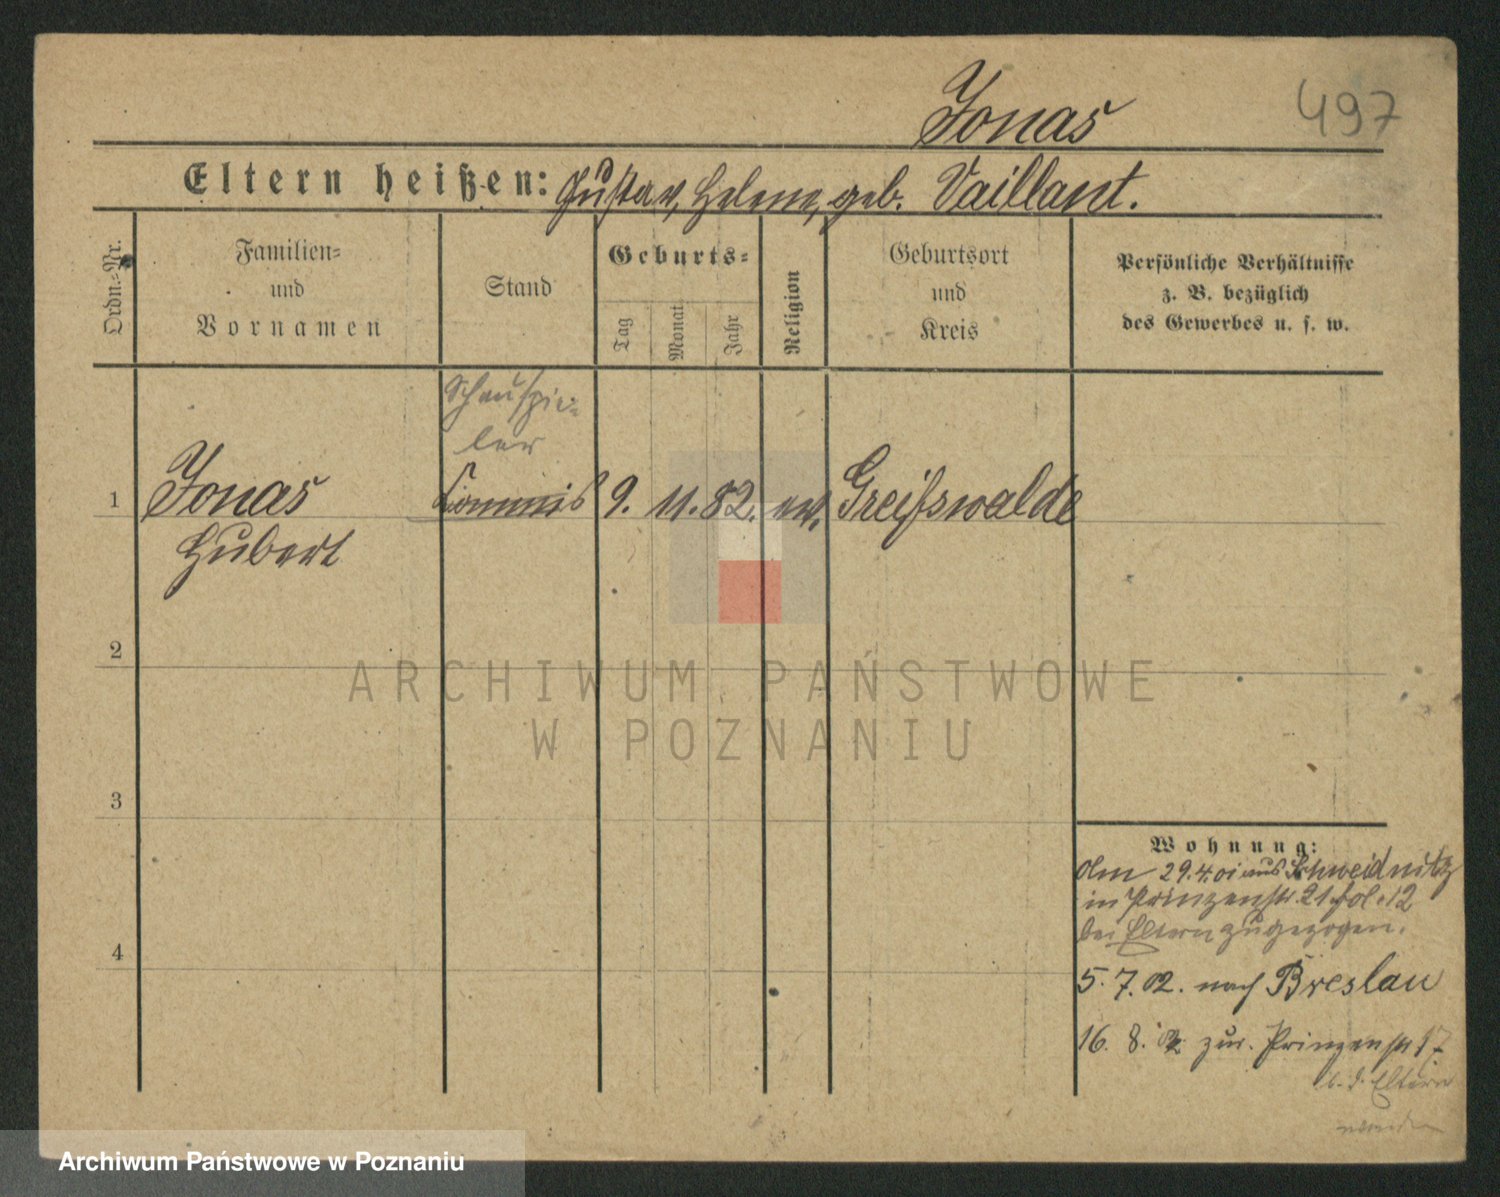 Jonas
497
Eltern heißen: Gustav, Helene, geb. Vaillant.
Ordn.=Nr.
Familien=
und
Vornamen
Stand
Geburts=
Tag
Monat
Jahr
Religion
Geburtsort
und
Kreis
Persönliche Verhältnisse
z. B. bezüglich
des Gewerbes u. s. w.
Schauspie=
ler
1 Jonas Commis 9. 11. 82. ev. Greifswalde
Hubert
2
ARCHIWUM PAŃSTWOWE
W POZNANIU
3
4
Wohnung:
29.4.01 aus Schweidnitz
in Prinzenstr. 21 fol. 12
bei Eltern zugezogen.
5. 7. 02. nach Breslau
16. 8. 02 zur. Prinzenstr 17
b. d. Eltern
Archiwum Państwowe w Poznaniu